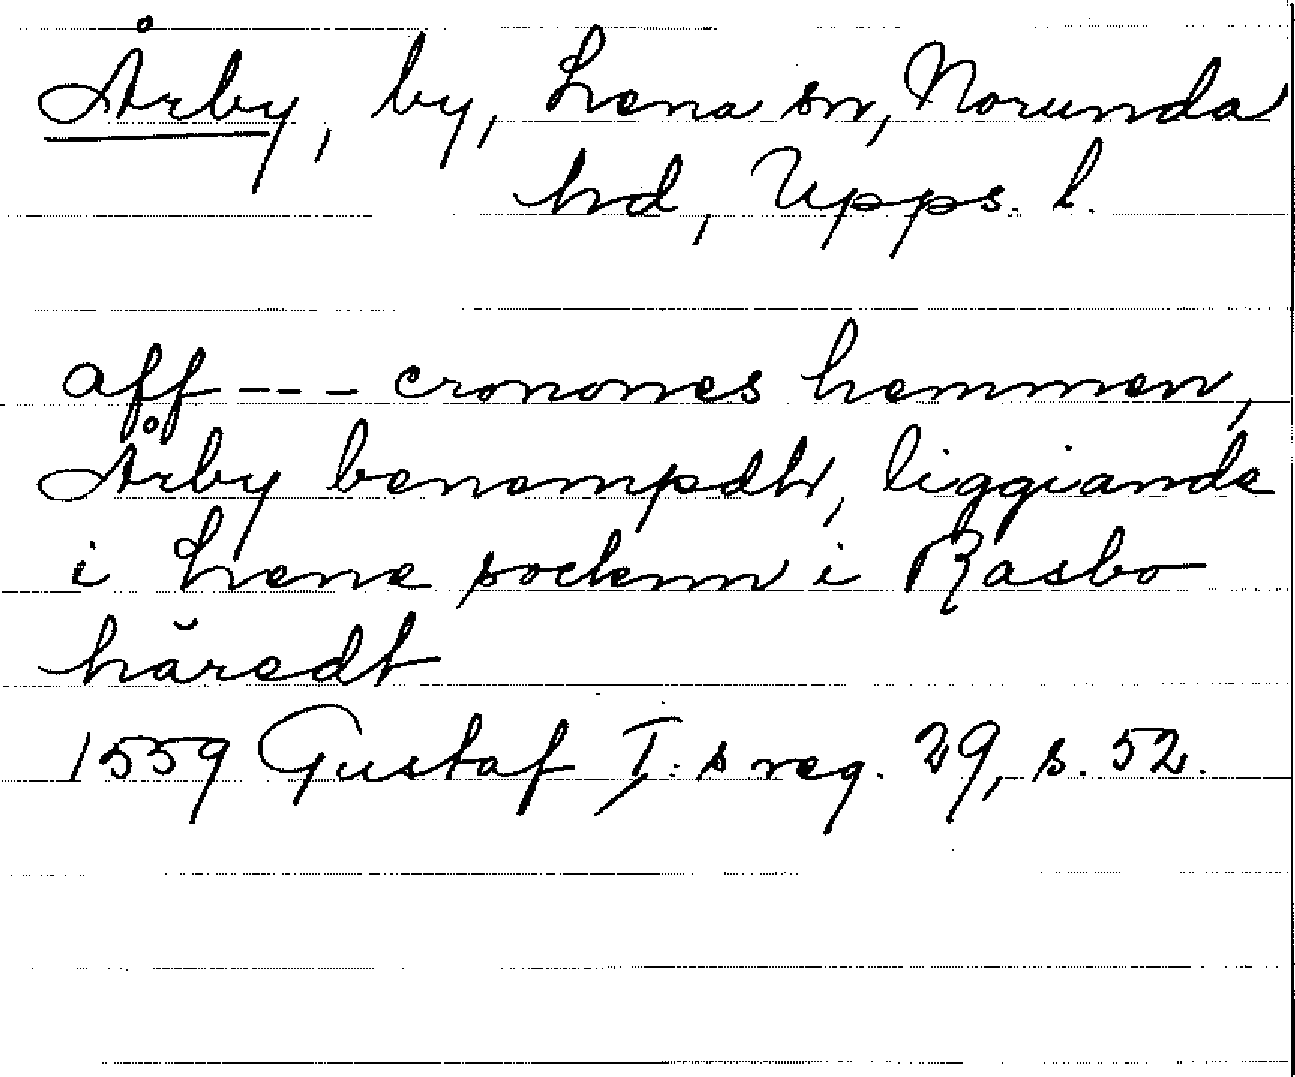 Årby, by, Lena sn, Norunda
hd, Upps. l.
aff --- cronones hemmen,
Årby benempdh, liggiande
i Lene sockenn i Rasbo
häredt
1559 Gustaf I:s reg. 29, s. 52.